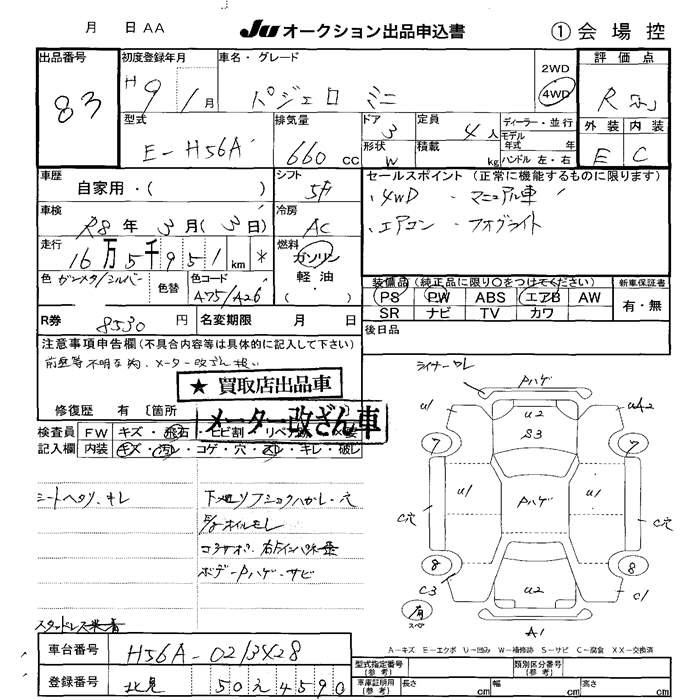 月 日 AA JU オークション出品申込書 ① 会場控
出品番号 83
初度登録年月 H 9 / 1月
車名・グレード パジェロ ミニ
2WD 4WD
評価点 R
外装 内装
E C
型式 E-H56A
排気量 660 cc
ドア 3
形状 W
定員 4人
積載 kg
ディーラー・並行
モデル年式 年
ハンドル 左・右
車歴 自家用・( )
シフト 5F
セールスポイント (正常に機能するものに限ります)
・4WD ・マニュアル車
・エアコン ・フォグライト
車検 R8年 3月(3日)
冷房 AC
走行 16万5千951km *
燃料 ガソリン 軽油・( )
色 ガンメタ/シルバー
色替
色コード A75/A26
装備品 (純正品に限り〇をつけてください)
新車保証書
PS PW ABS エアB AW
SR ナビ TV カワ
有・無
R券 8530円
名変期限 月 日
後日品
注意事項申告欄(不具合内容は具体的に記入して下さい)
前歴等不明な為、メーター改ざん扱い
★ 買取店出品車
メーター改ざん車
修復歴 有 〔箇所
検査員記入欄
FW キズ・飛石・ヒビ割
内装 キズ・汚レ・コゲ・穴・スレ・キレ・破レ
シートヘタリ、キレ
E/gオイルモレ
ボデーPハゲ・サビ
ライナーワレ
Pハゲ
U1 U2 UA2
S3
7 7
U1 Pハゲ U1
C穴 C穴
8 8
C3 U2 C1
有 スペ
A1
A-キズ E-エクボ U-凹み W-補修跡 S-サビ C-腐食 XX-交換済
車台番号 H56A-0213428
登録番号 北見 50 え 4590
型式指定番号(参考)
類別区分番号(参考)
車庫証明用(参考) 長さ cm 幅 cm 高さ cm